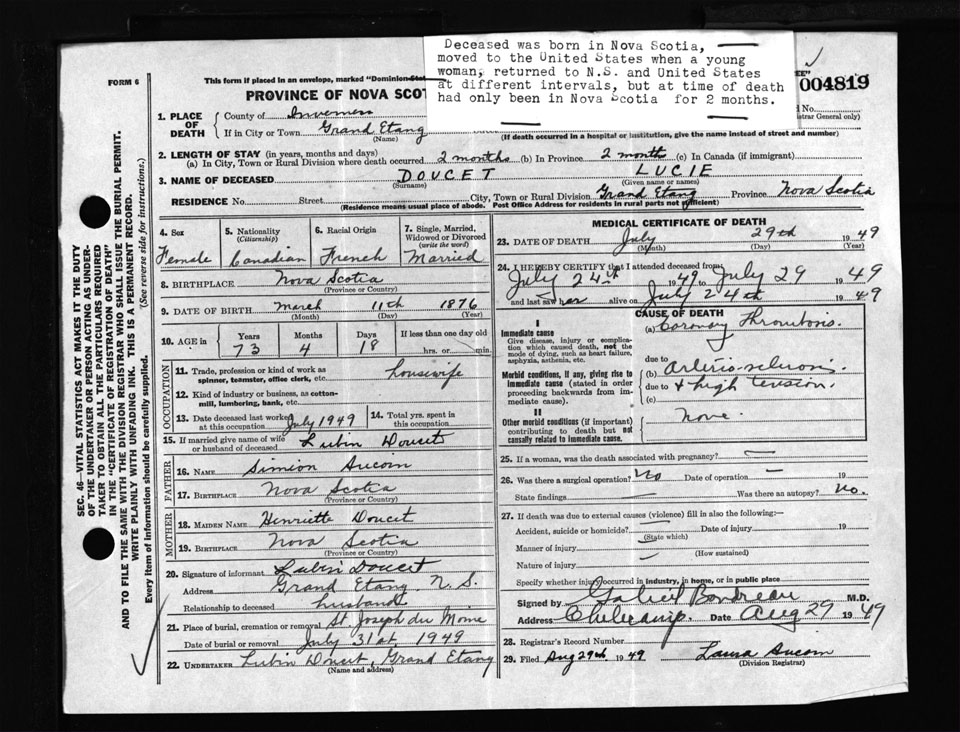 Deceased was born in Nova Scotia,
moved to the United States when a young
woman, returned to N.S. and United States
at different intervals, but at time of death
had only been in Nova Scotia for 2 months.
FORM 6
This form if placed in an envelope, marked "Dominion
004819
PROVINCE OF NOVA SCOT
No.
(Registrar General only)
1. PLACE OF DEATH
County of Inverness
If in City or Town Grand Etang
(Name)
(If death occurred in a hospital or institution, give the name instead of street and number)
2. LENGTH OF STAY (in years, months and days)
(a) In City, Town or Rural Division where death occurred 2 months (b) In Province 2 month (c) In Canada (if immigrant)
3. NAME OF DECEASED DOUCET LUCIE
(Surname) (Given name or names)
RESIDENCE No. Street City, Town or Rural Division Grand Etang Province Nova Scotia
(Residence means usual place of abode. Post Office Address for residents in rural parts not sufficient)
4. Sex Female
5. Nationality (Citizenship) Canadian
6. Racial Origin French
7. Single, Married, Widowed or Divorced (write the word) Married
8. BIRTHPLACE Nova Scotia
(Province or Country)
9. DATE OF BIRTH March 11th 1876
(Month) (Day) (Year)
10. AGE in Years 73 Months 4 Days 18 If less than one day old hrs. or min.
OCCUPATION
11. Trade, profession or kind of work as spinner, teamster, office clerk, etc. housewife
12. Kind of industry or business, as cotton-mill, lumbering, bank, etc.
13. Date deceased last worked at this occupation July 1949
14. Total yrs. spent in this occupation
15. If married give name of wife or husband of deceased Lubin Doucet
FATHER
16. NAME Simion Aucoin
17. BIRTHPLACE Nova Scotia
(Province or Country)
MOTHER
18. MAIDEN NAME Henriette Doucet
19. BIRTHPLACE Nova Scotia
(Province or Country)
20. Signature of informant Lubin Doucet
Address Grand Etang N. S.
Relationship to deceased husband
21. Place of burial, cremation or removal St Joseph du Moine
Date of burial or removal July 31st, 1949
22. UNDERTAKER Lubin Doucet, Grand Etang
(Name and address)
MEDICAL CERTIFICATE OF DEATH
23. DATE OF DEATH July 29th 1949
(Month) (Day) (Year)
24. I HEREBY CERTIFY that I attended deceased from
July 24th 1949 to July 29 1949
and last saw her alive on July 24th 1949
CAUSE OF DEATH
I
Immediate cause
Give disease, injury or complication which caused death, not the mode of dying, such as heart failure, asphyxia, asthenia, etc.
(a) Coronay Thrombosis.
due to
Morbid conditions, if any, giving rise to immediate cause (stated in order proceeding backwards from immediate cause).
(b) Arterio-sclerosis
due to & high tension.
(c)
II
Other morbid conditions (if important) contributing to death but not causally related to immediate cause.
None.
25. If a woman, was the death associated with pregnancy?
26. Was there a surgical operation? No Date of operation 19
State findings Was there an autopsy? No.
27. If death was due to external causes (violence) fill in also the following:-
Accident, suicide or homicide? Date of injury 19
(State which)
Manner of injury
(How sustained)
Nature of injury
Specify whether injury occurred in industry, in home, or in public place
Signed by Gabriel Boudreau M.D.
Address Date Aug 29 1949
28. Registrar's Record Number
29. Filed Aug 29th 1949 Laura Aucoin
(Division Registrar)
SEC. 46—VITAL STATISTICS ACT MAKES IT THE DUTY
OF THE UNDERTAKER OR PERSON ACTING AS UNDER-
TAKER TO OBTAIN ALL THE PARTICULARS REQUIRED
IN THE "CERTIFICATE OF REGISTRATION OF DEATH"
AND TO FILE THE SAME WITH THE DIVISION REGISTRAR WHO SHALL ISSUE THE BURIAL PERMIT.
WRITE PLAINLY WITH UNFADING INK. THIS IS A PERMANENT RECORD.
Every item of information should be carefully supplied. (See reverse side for instructions.)